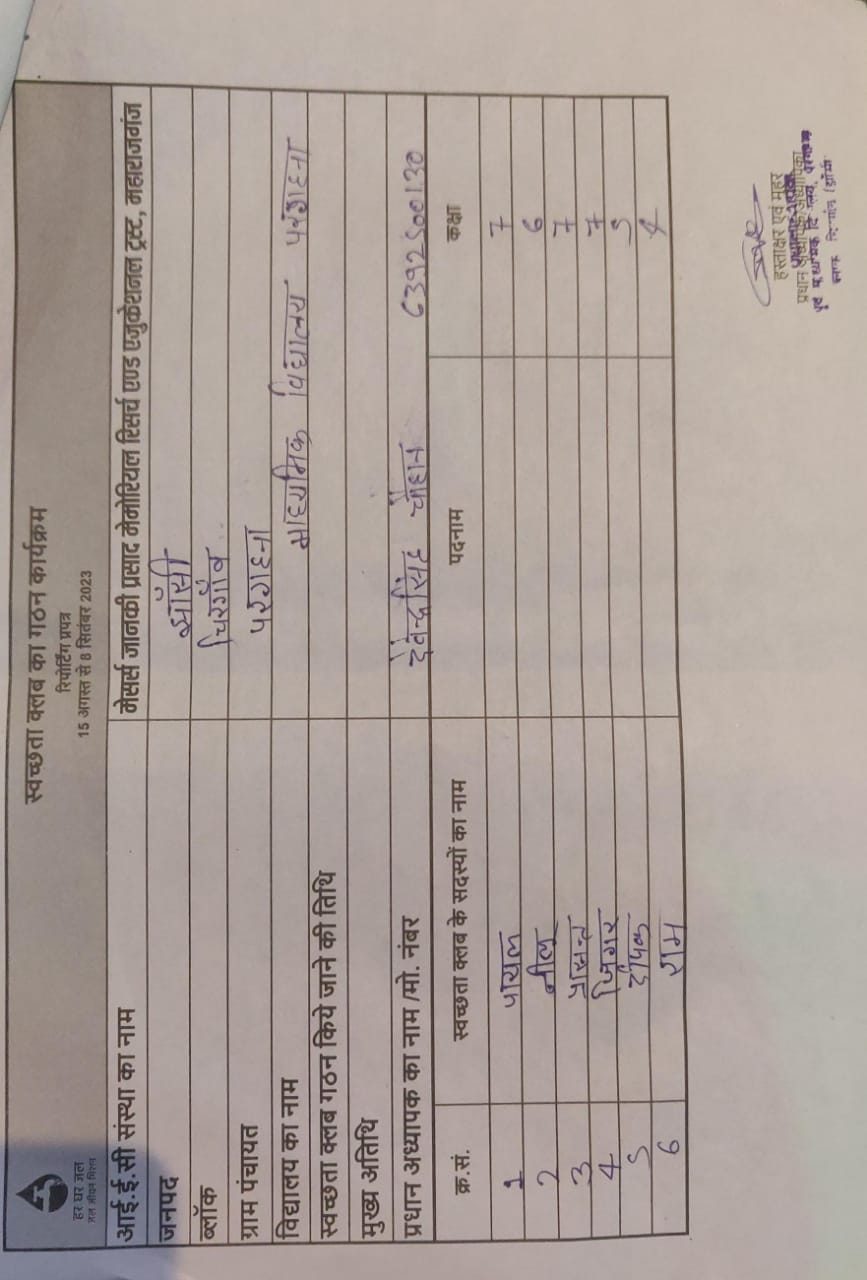 हर घर जल
जल जीवन मिशन
स्वच्छता क्लब का गठन कार्यक्रम
रिपोर्टिंग प्रपत्र
15 अगस्त से 8 सितंबर 2023
आई.ई.सी संस्था का नाम मेसर्स जानकी प्रसाद मेमोरियल रिसर्च एण्ड एजुकेशनल ट्रस्ट, महाराजगंज
जनपद झाँसी
ब्लॉक चिरगाँव
ग्राम पंचायत परगहना
विद्यालय का नाम माध्यमिक विद्यालय परगहना
स्वच्छता क्लब गठन किये जाने की तिथि
मुख्य अतिथि
प्रधान अध्यापक का नाम /मो. नंबर देवेन्द्र सिंह चौहान 6392500130
क्र.सं. स्वच्छता क्लब के सदस्यों का नाम पदनाम कक्षा
1 पायल 7
2 नीलू 6
3 7
4 जिगर 7
5 दीपक 5
6 राम
हस्ताक्षर एवं मुहर
प्रधान अध्यापक/अध्यापिका